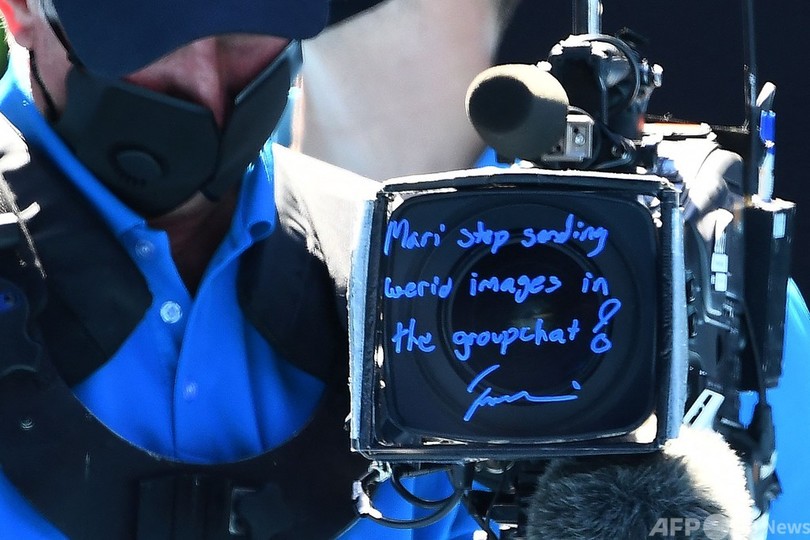 Mari stop sending
werid images in
the groupchat !
AFP News